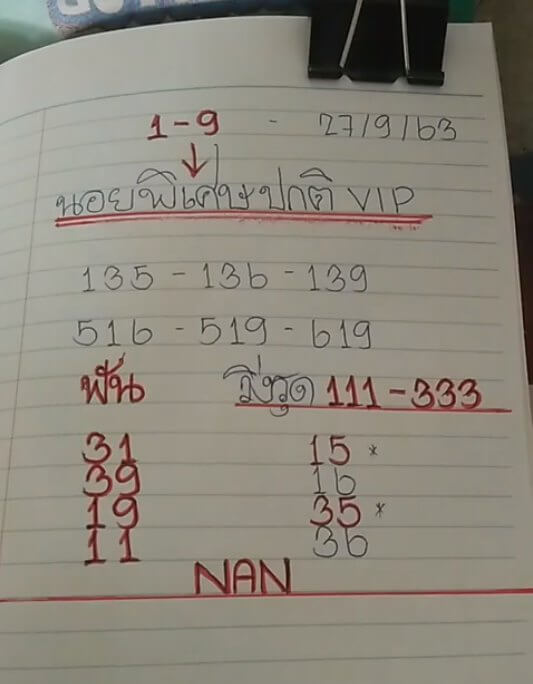 1-9 - 27/9/63
นอยพิเศษ ปกติ VIP
135 - 136 - 139
516 - 519 - 619
ฟัน วิ่งรูด 111-333
31 15 *
39 16
19 35 *
11 36
NAN